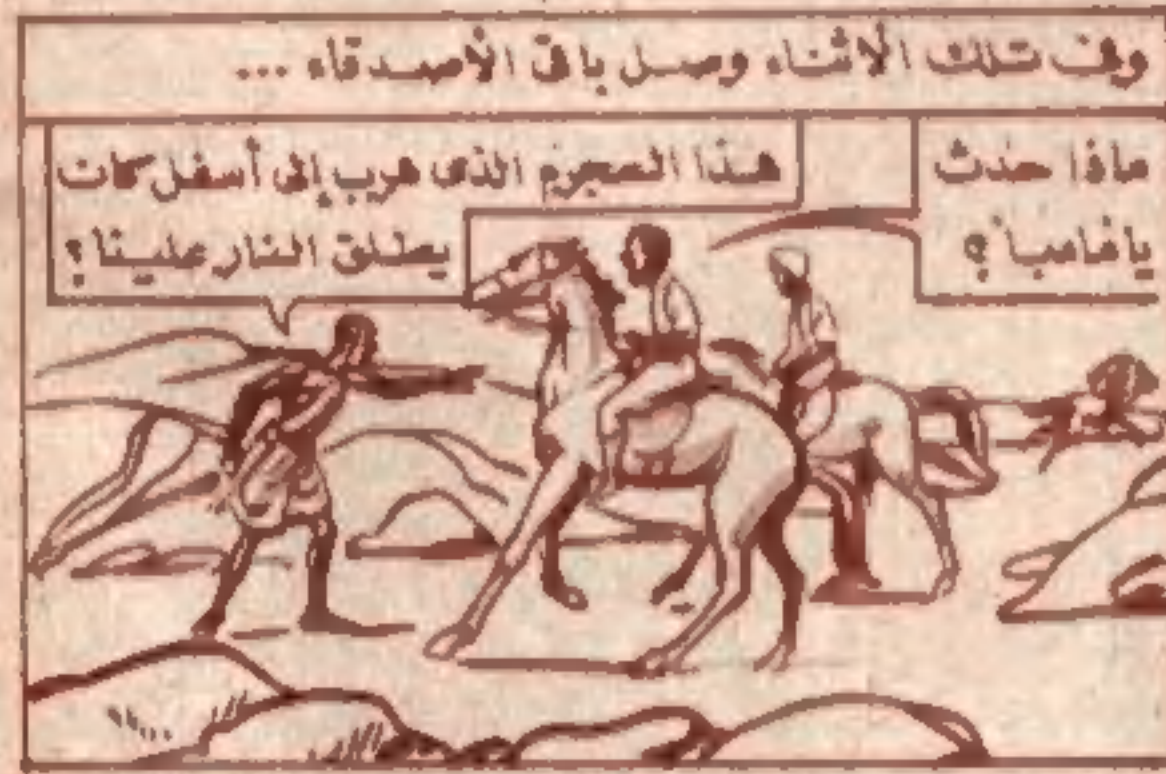 وفى تلك الأثناء وصل باقى الأصدقاء ...
ماذا حدث
ياغامبا؟
هذا المجرم الذى هرب إلى أسفل كان
يطلق النار علينا؟